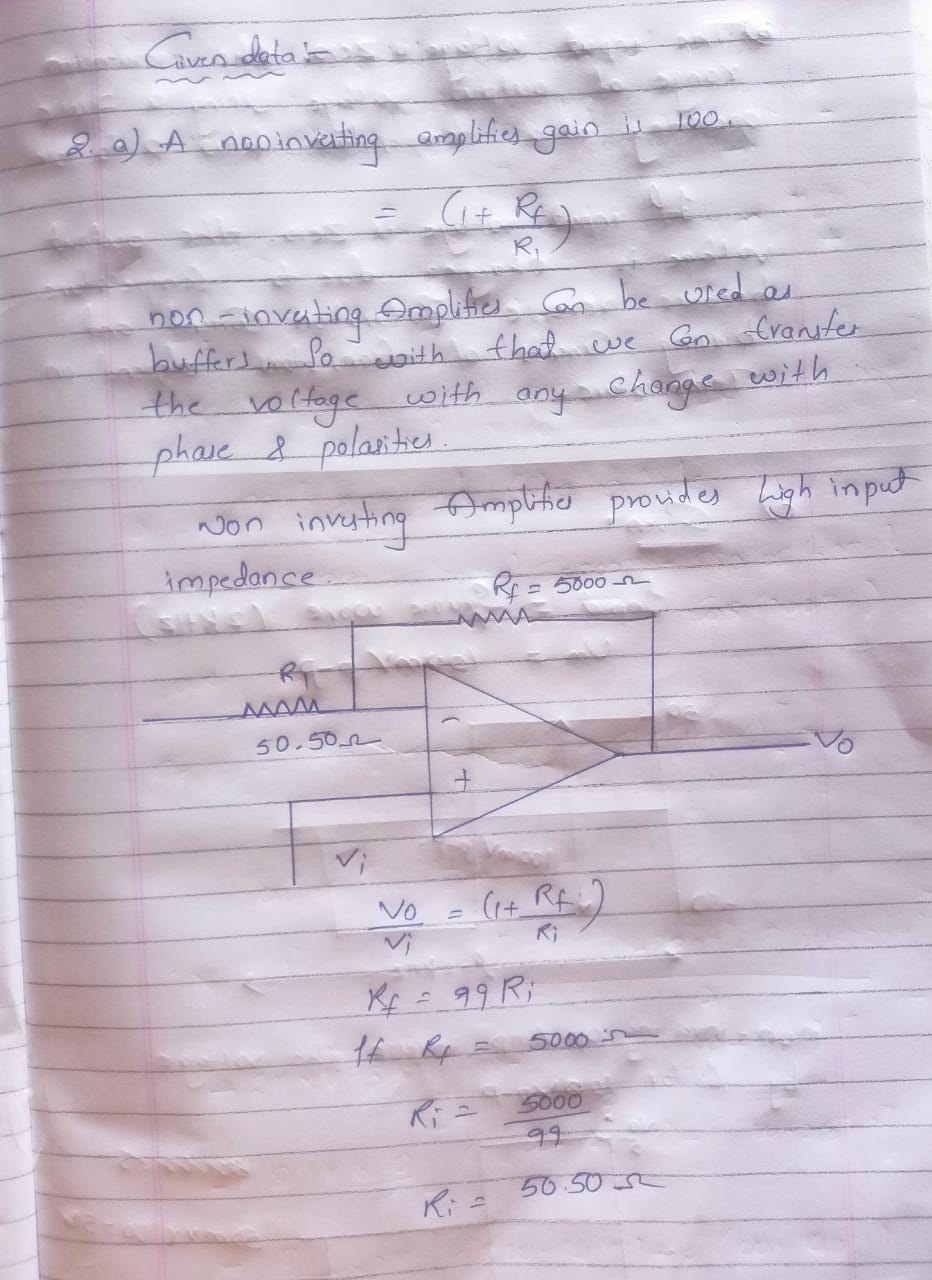 Given data :-
2. a) A nooinverting amplifier gain is 100.
= (1 + Rf / R1)
non-inverting Amplifier Can be used as
buffers. So with that we Can transfer
the voltage with any change with
phase & polarities.
Non inverting Amplifier provides high input
impedance.
Rf = 5000 Ω
R1
-
50.50 Ω
Vo
+
Vi
Vo / Vi = (1 + Rf / Ri)
Rf = 99 Ri
If Rf = 5000 Ω
Ri = 5000 / 99
Ri = 50.50 Ω